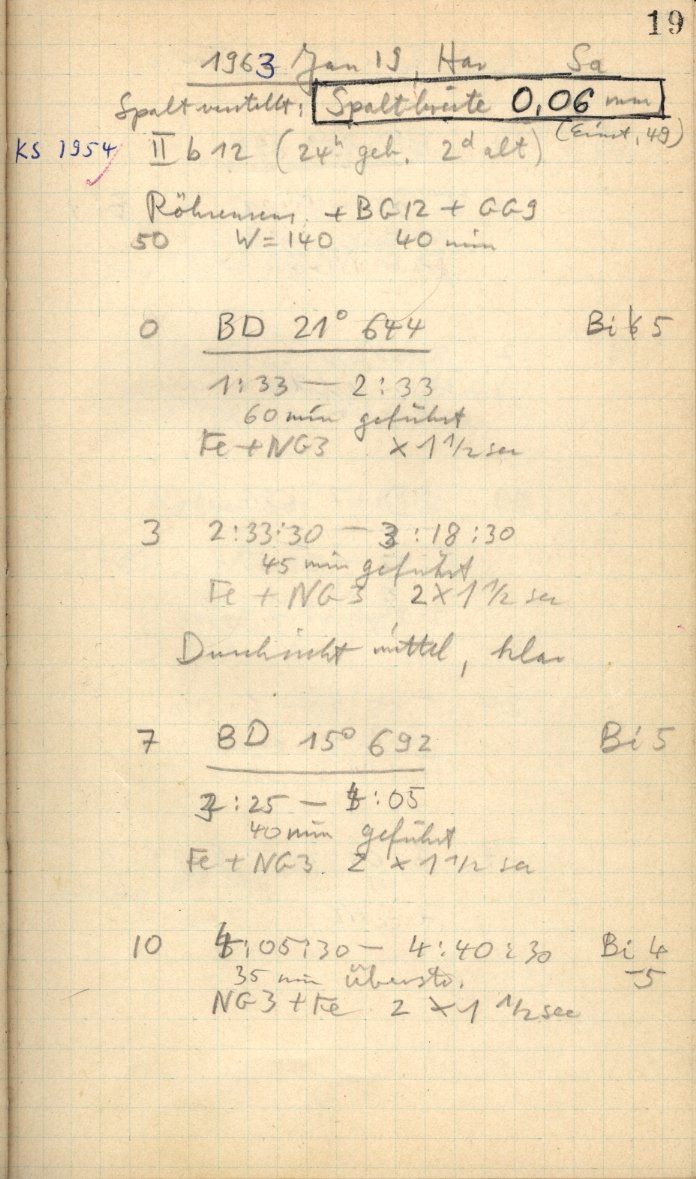 19
1963 Jan 19, Har Sa
Spalt verstellt, Spaltbreite 0,06 mm
(Einst, 49)
KS 1954 II b 12 (24h geh. 2d alt)
+ BG12 + GG9
50 W=140 40 min
0 BD 21° 644 Bi 5
1:33 — 2:33
60 min geführt
Fe + NG3 × 1 1/2 sec
3 2:33:30 — 3:18:30
45 min geführt
Fe + NG3 2 × 1 1/2 sec
Durchsicht mittel, klar
7 BD 15° 692 Bi 5
3:25 — 4:05
40 min geführt
Fe + NG3 2 × 1 1/2 sec
10 4:05:30 — 4:40:30 Bi 4
-5
35 min überstr.
NG3 + Fe 2 × 1 1/2 sec